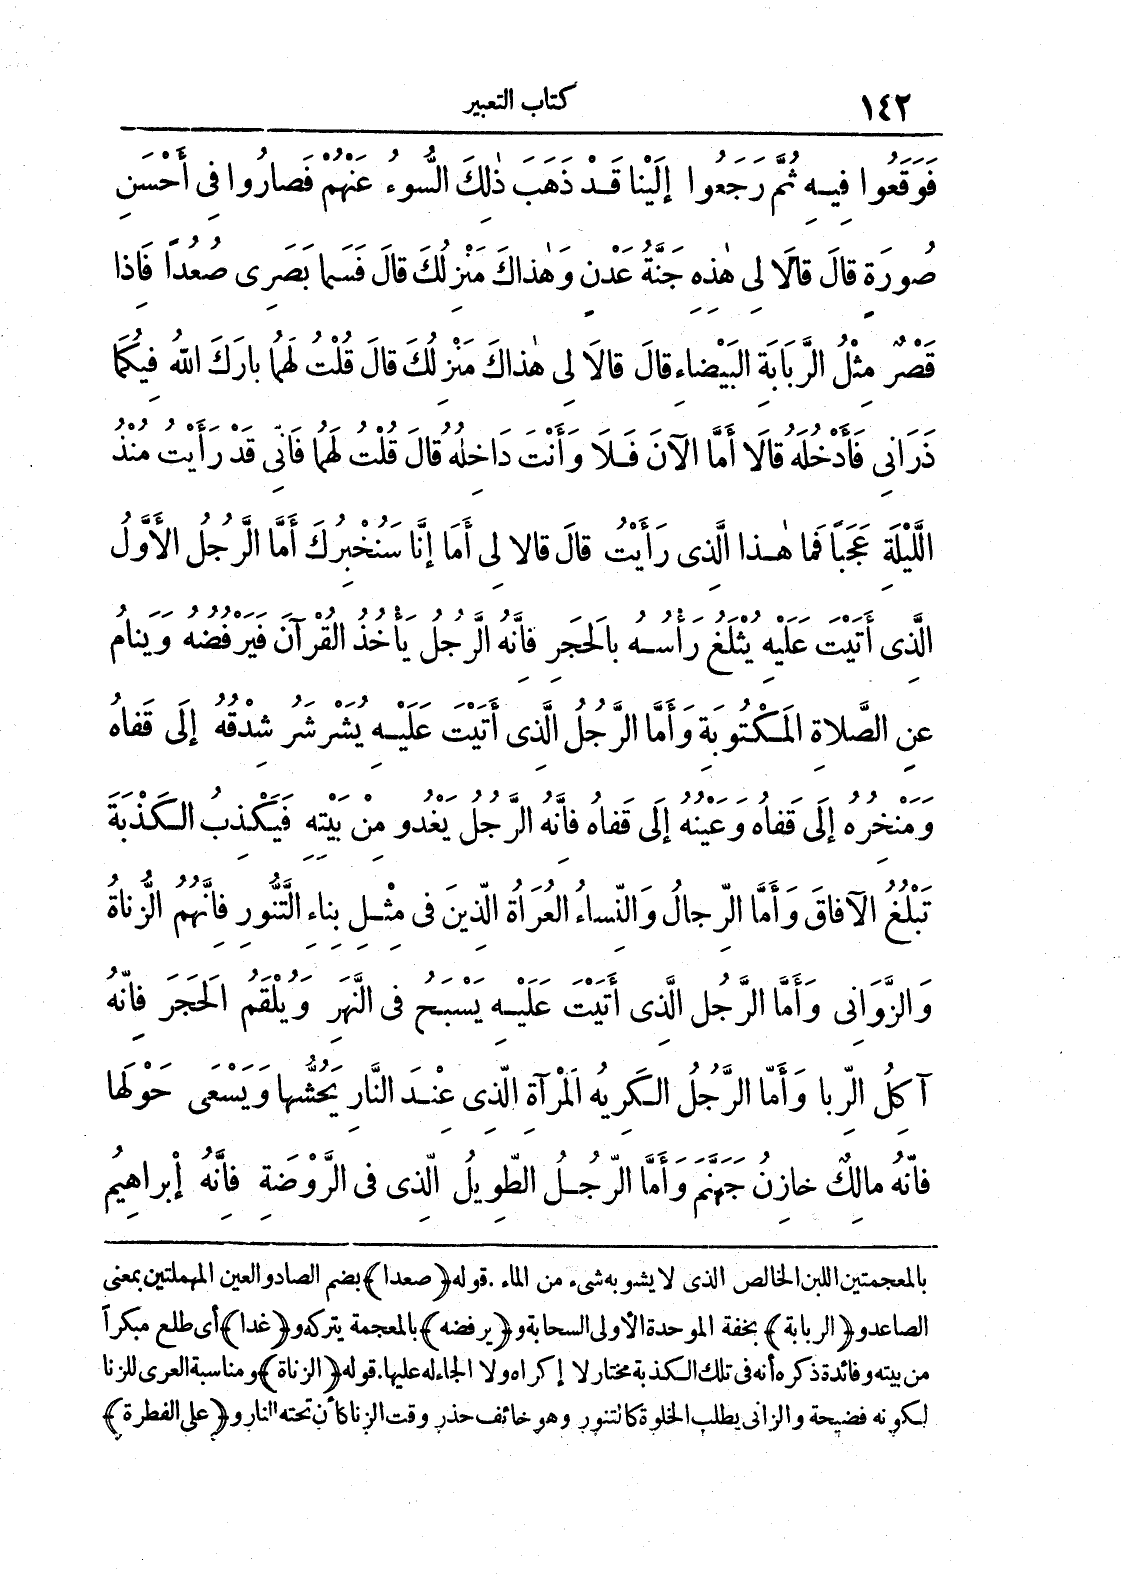 ١٤٢ كتاب التعبير
فَوَقَعُوا فِيهِ ثُمَّ رَجَعُوا إِلَيْنا قَدْ ذَهَبَ ذٰلِكَ السُّوءُ عَنْهُمْ فَصارُوا فِى أَحْسَنِ
صُورَةٍ قالَ قالَا لِى هٰذِهِ جَنَّةُ عَدْنٍ وَهٰذاكَ مَنْزِلُكَ قالَ فَسَما بَصَرِى صُعُداً فَاذا
قَصْرٌ مِثْلُ الرَّبَابَةِ البَيْضاءِ قالَ قالَا لِى هٰذاكَ مَنْزِلُكَ قالَ قُلْتُ لَهُما بارَكَ اللهُ فِيكُمَا
ذَرَانِى فَأَدْخُلَهُ قالَا أَمَّا الآنَ فَلَا وَأَنْتَ دَاخِلُهُ قالَ قُلْتُ لَهُما فَانِّى قَدْ رَأَيْتُ مُنْذُ
اللَّيْلَةِ عَجَباً فَما هٰذا الَّذِى رَأَيْتُ قالَ قالا لِى أَمَا إِنَّا سَنُخْبِرُكَ أَمَّا الرَّجُلُ الأَوَّلُ
الَّذِى أَتَيْتَ عَلَيْهِ يُثْلَغُ رَأْسُهُ بِالحَجَرِ فانَّهُ الرَّجُلُ يَأْخُذُ القُرْآنَ فَيَرْفُضُهُ وَيَنامُ
عَنِ الصَّلاةِ المَكْتُوبَةِ وَأَمَّا الرَّجُلُ الَّذِى أَتَيْتَ عَلَيْهِ يُشَرْشَرُ شِدْقُهُ إِلَى قَفاهُ
وَمَنْخِرُهُ إِلَى قَفاهُ وَعَيْنُهُ إِلَى قَفاهُ فانَّهُ الرَّجُلُ يَغْدُو مِنْ بَيْتِهِ فَيَكْذِبُ الكَذْبَةَ
تَبْلُغُ الآفاقَ وَأَمَّا الرِّجالُ وَالنِّساءُ العُرَاةُ الَّذِينَ فِى مِثْلِ بِناءِ التَّنُّورِ فانَّهُمُ الزُّناةُ
وَالزَّوَانِى وَأَمَّا الرَّجُلُ الَّذِى أَتَيْتَ عَلَيْهِ يَسْبَحُ فِى النَّهَرِ وَيُلْقَمُ الحَجَرَ فانَّهُ
آكِلُ الرِّبا وَأَمَّا الرَّجُلُ الكَرِيهُ المَرْآةِ الَّذِى عِنْدَ النَّارِ يَحُشُّها وَيَسْعَى حَوْلَها
فانَّهُ مالِكٌ خازِنُ جَهَنَّمَ وَأَمَّا الرَّجُلُ الطَّوِيلُ الَّذِى فِى الرَّوْضَةِ فانَّهُ إِبْراهِيمُ
بالمعجمتين اللبن الخالص الذى لا يشوبه شىء من الماء. قوله ﴿صعدا﴾ بضم الصاد والعين المهملتين بمعنى
الصاعد و﴿الربابة﴾ بخفة الموحدة الأولى السحابة و﴿يرفضه﴾ بالمعجمة يتركه و﴿غدا﴾ أى طلع مبكراً
من بيته وفائدة ذكره أنه فى تلك الكذبة مختار لا إكراه ولا الجاء له عليها. قوله ﴿الزناة﴾ ومناسبة العرى للزنا
لكونه فضيحة والزانى يطلب الخلوة كالتنور وهو خائف حذر وقت الزنا كأن تحته النار و﴿على الفطرة﴾